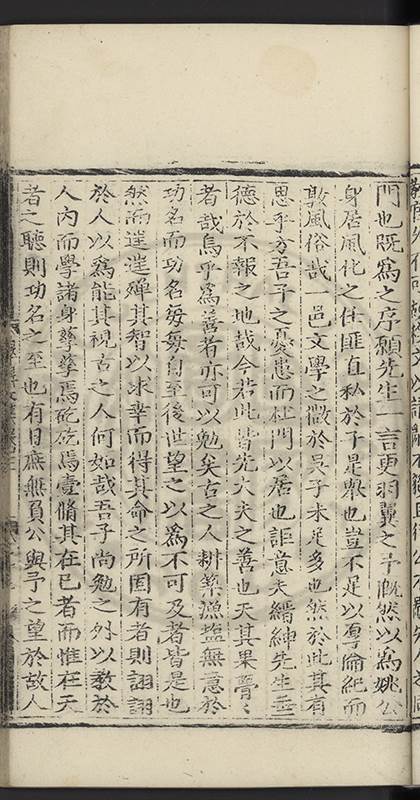 門也既爲之序願先生一言更羽翼之予旣然以爲姚公
身居風化之任匪直私於予是舉也豈不足以厚倫紀而
敦風俗哉一邑文學之微於吳子未足多也然於此其有
思乎方吾子之憂患而杜門以居也詎意夫縉紳先生垂
德於不報之地哉今若此皆先大夫之善也天其果瞢瞢
者哉烏乎爲善者亦可以勉矣古之人耕築漁鹽無意於
功名而功名每每自至後世望之以爲不可及者皆是也
然而遑遑殫其智以求幸而得其命之所固有者則詡詡
於人以爲能其視古之人何如哉吾子尚勉之外以敎於
人內而學諸身孳孳焉矻矻焉壹脩其在已者而惟在天
者之聽則功名之至也有日庶無負公與予之望於故人